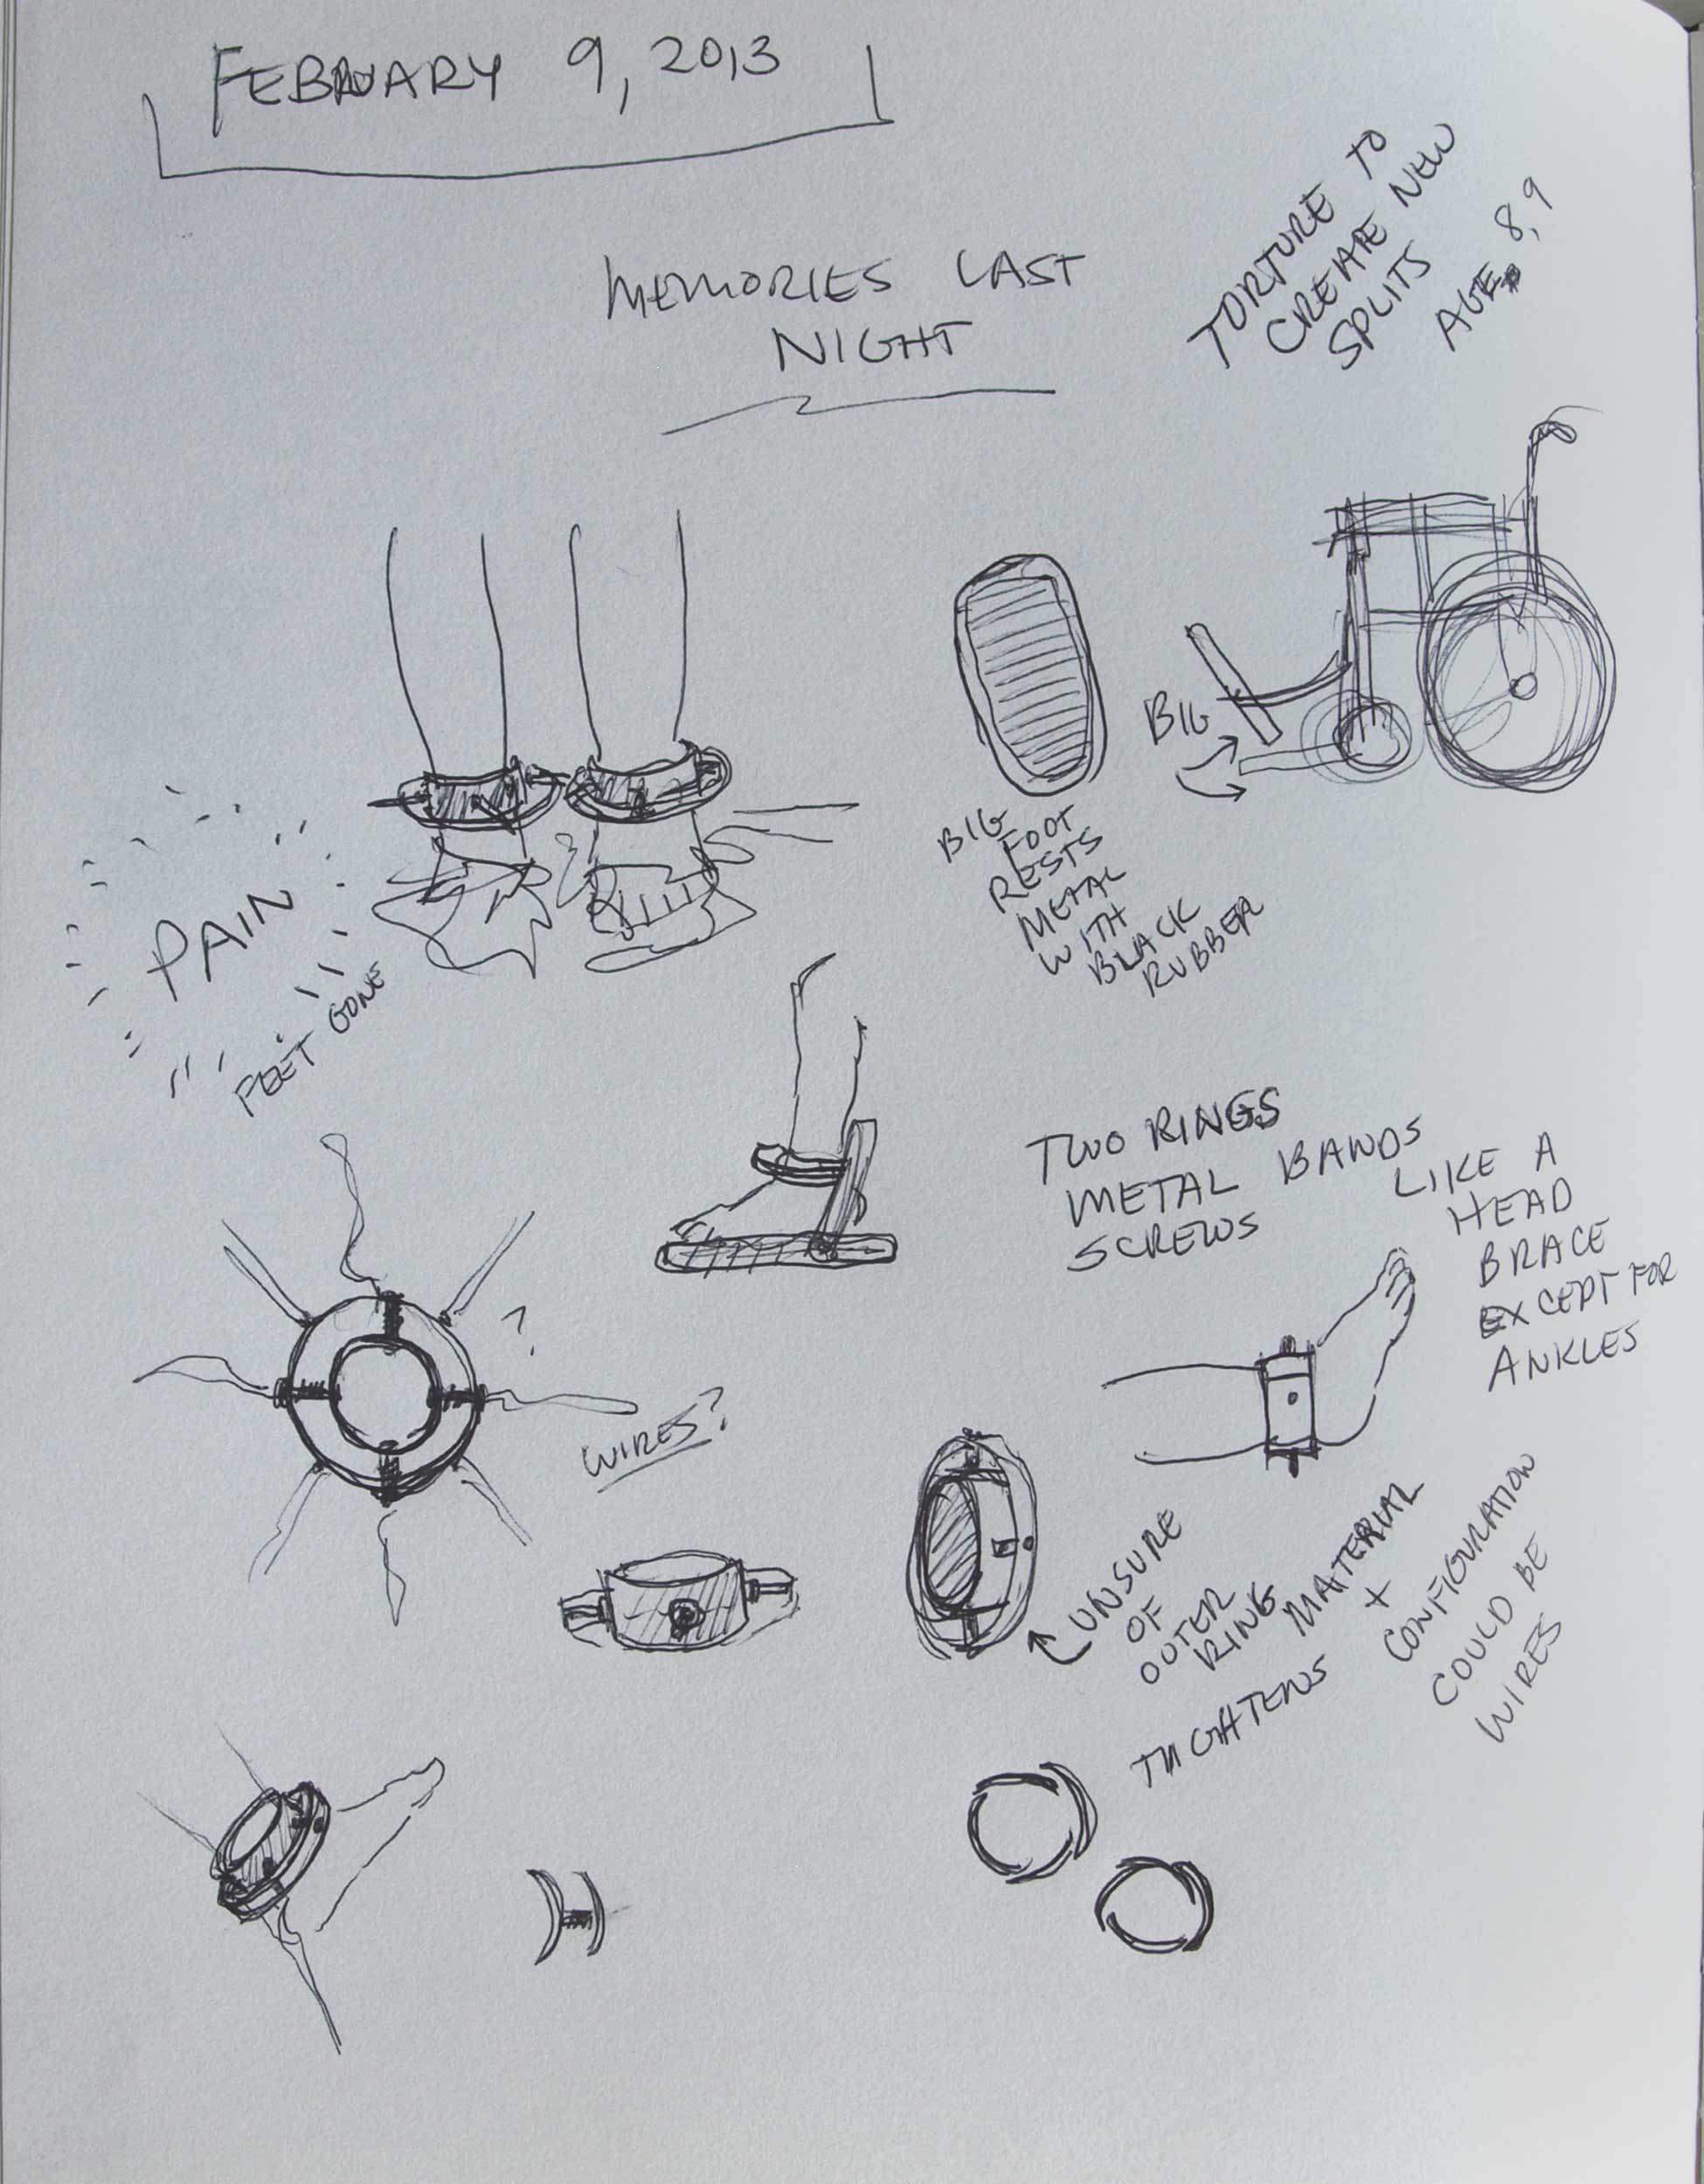 FEBRUARY 9, 2013
MEMORIES LAST
NIGHT
TORTURE TO
CREATE NEW
SPLITS
AGE 8, 9
BIG
BIG
FOOT
RESTS
METAL
WITH
BLACK
RUBBER
PAIN
FEET GONE
TWO RINGS
METAL BANDS
SCREWS
LIKE A
HEAD
BRACE
EXCEPT FOR
ANKLES
?
WIRES?
UNSURE
OF
OUTER
RING
MATERIAL
+
CONFIGURATION
COULD BE
WIRES
TIGHTENS